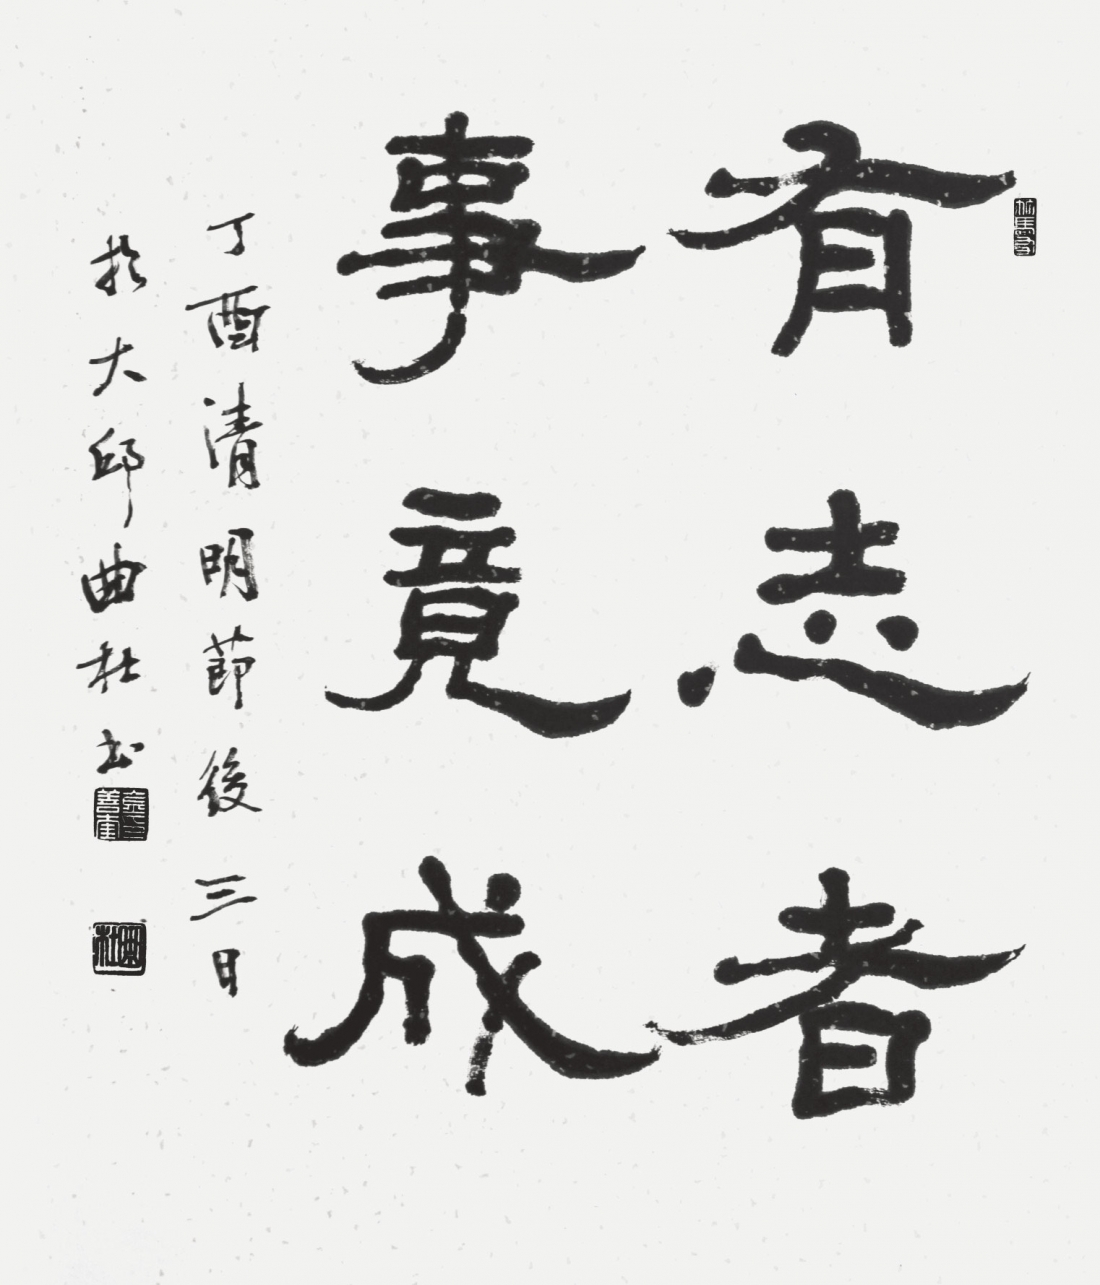 有志者
事竟成
丁酉清明節後三日
於大邱曲杜書